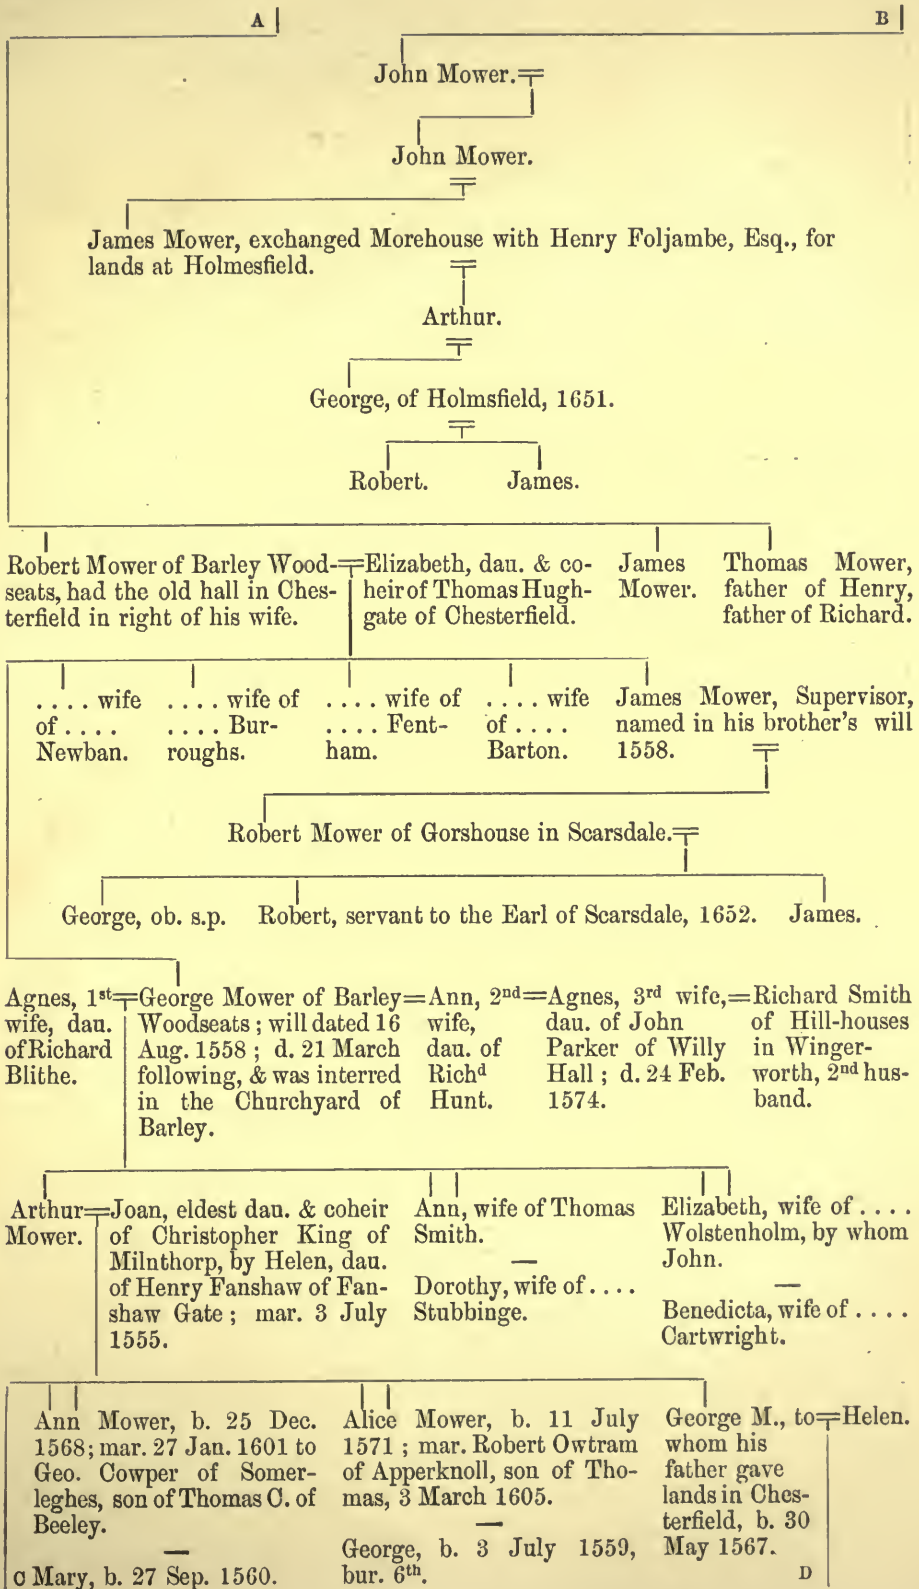 A
B
John Mower.
John Mower.
James Mower, exchanged Morehouse with Henry Foljambe, Esq., for
lands at Holmesfield.
Arthur.
George, of Holmsfield, 1651.
Robert.
James.
Robert Mower of Barley Wood-
seats, had the old hall in Ches-
terfield in right of his wife.
Elizabeth, dau. & co-
heir of Thomas Hugh-
gate of Chesterfield.
James
Mower.
Thomas Mower,
father of Henry,
father of Richard.
.... wife
of ....
Newban.
.... wife of
.... Bur-
roughs.
.... wife of
.... Fent-
ham.
.... wife
of ....
Barton.
James Mower, Supervisor,
named in his brother's will
1558.
Robert Mower of Gorshouse in Scarsdale.
George, ob. s.p.
Robert, servant to the Earl of Scarsdale, 1652.
James.
Agnes, 1st
wife, dau.
of Richard
Blithe.
George Mower of Barley
Woodseats; will dated 16
Aug. 1558; d. 21 March
following, & was interred
in the Churchyard of
Barley.
Ann, 2nd
wife,
dau. of
Richd
Hunt.
Agnes, 3rd wife,
dau. of John
Parker of Willy
Hall; d. 24 Feb.
1574.
Richard Smith
of Hill-houses
in Winger-
worth, 2nd hus-
band.
Arthur
Mower.
Joan, eldest dau. & coheir
of Christopher King of
Milnthorp, by Helen, dau.
of Henry Fanshaw of Fan-
shaw Gate; mar. 3 July
1555.
Ann, wife of Thomas
Smith.
—
Dorothy, wife of ....
Stubbinge.
Elizabeth, wife of ....
Wolstenholm, by whom
John.
—
Benedicta, wife of ....
Cartwright.
Ann Mower, b. 25 Dec.
1568; mar. 27 Jan. 1601 to
Geo. Cowper of Somer-
leghes, son of Thomas C. of
Beeley.
—
C Mary, b. 27 Sep. 1560.
Alice Mower, b. 11 July
1571; mar. Robert Owtram
of Apperknoll, son of Tho-
mas, 3 March 1605.
—
George, b. 3 July 1559,
bur. 6th.
George M., to
whom his
father gave
lands in Ches-
terfield, b. 30
May 1567.
Helen.
D